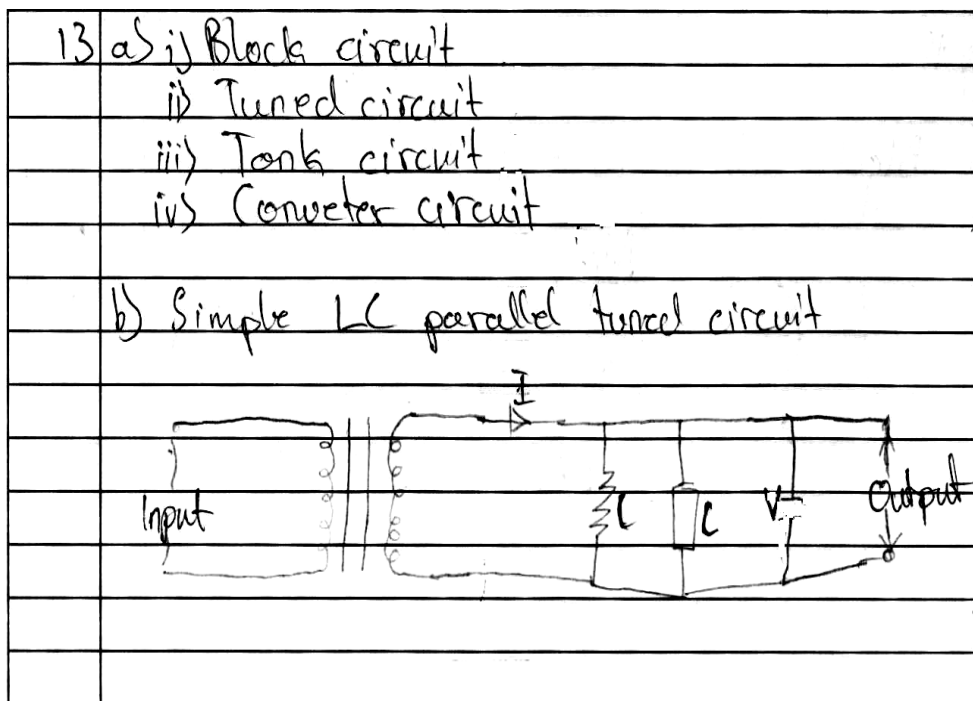 13 a) i) Block circuit
ii) Tuned circuit
iii) Tank circuit
iv) Conveter circuit
b) Simple LC parallel tuned circuit
I
Input L C V Output